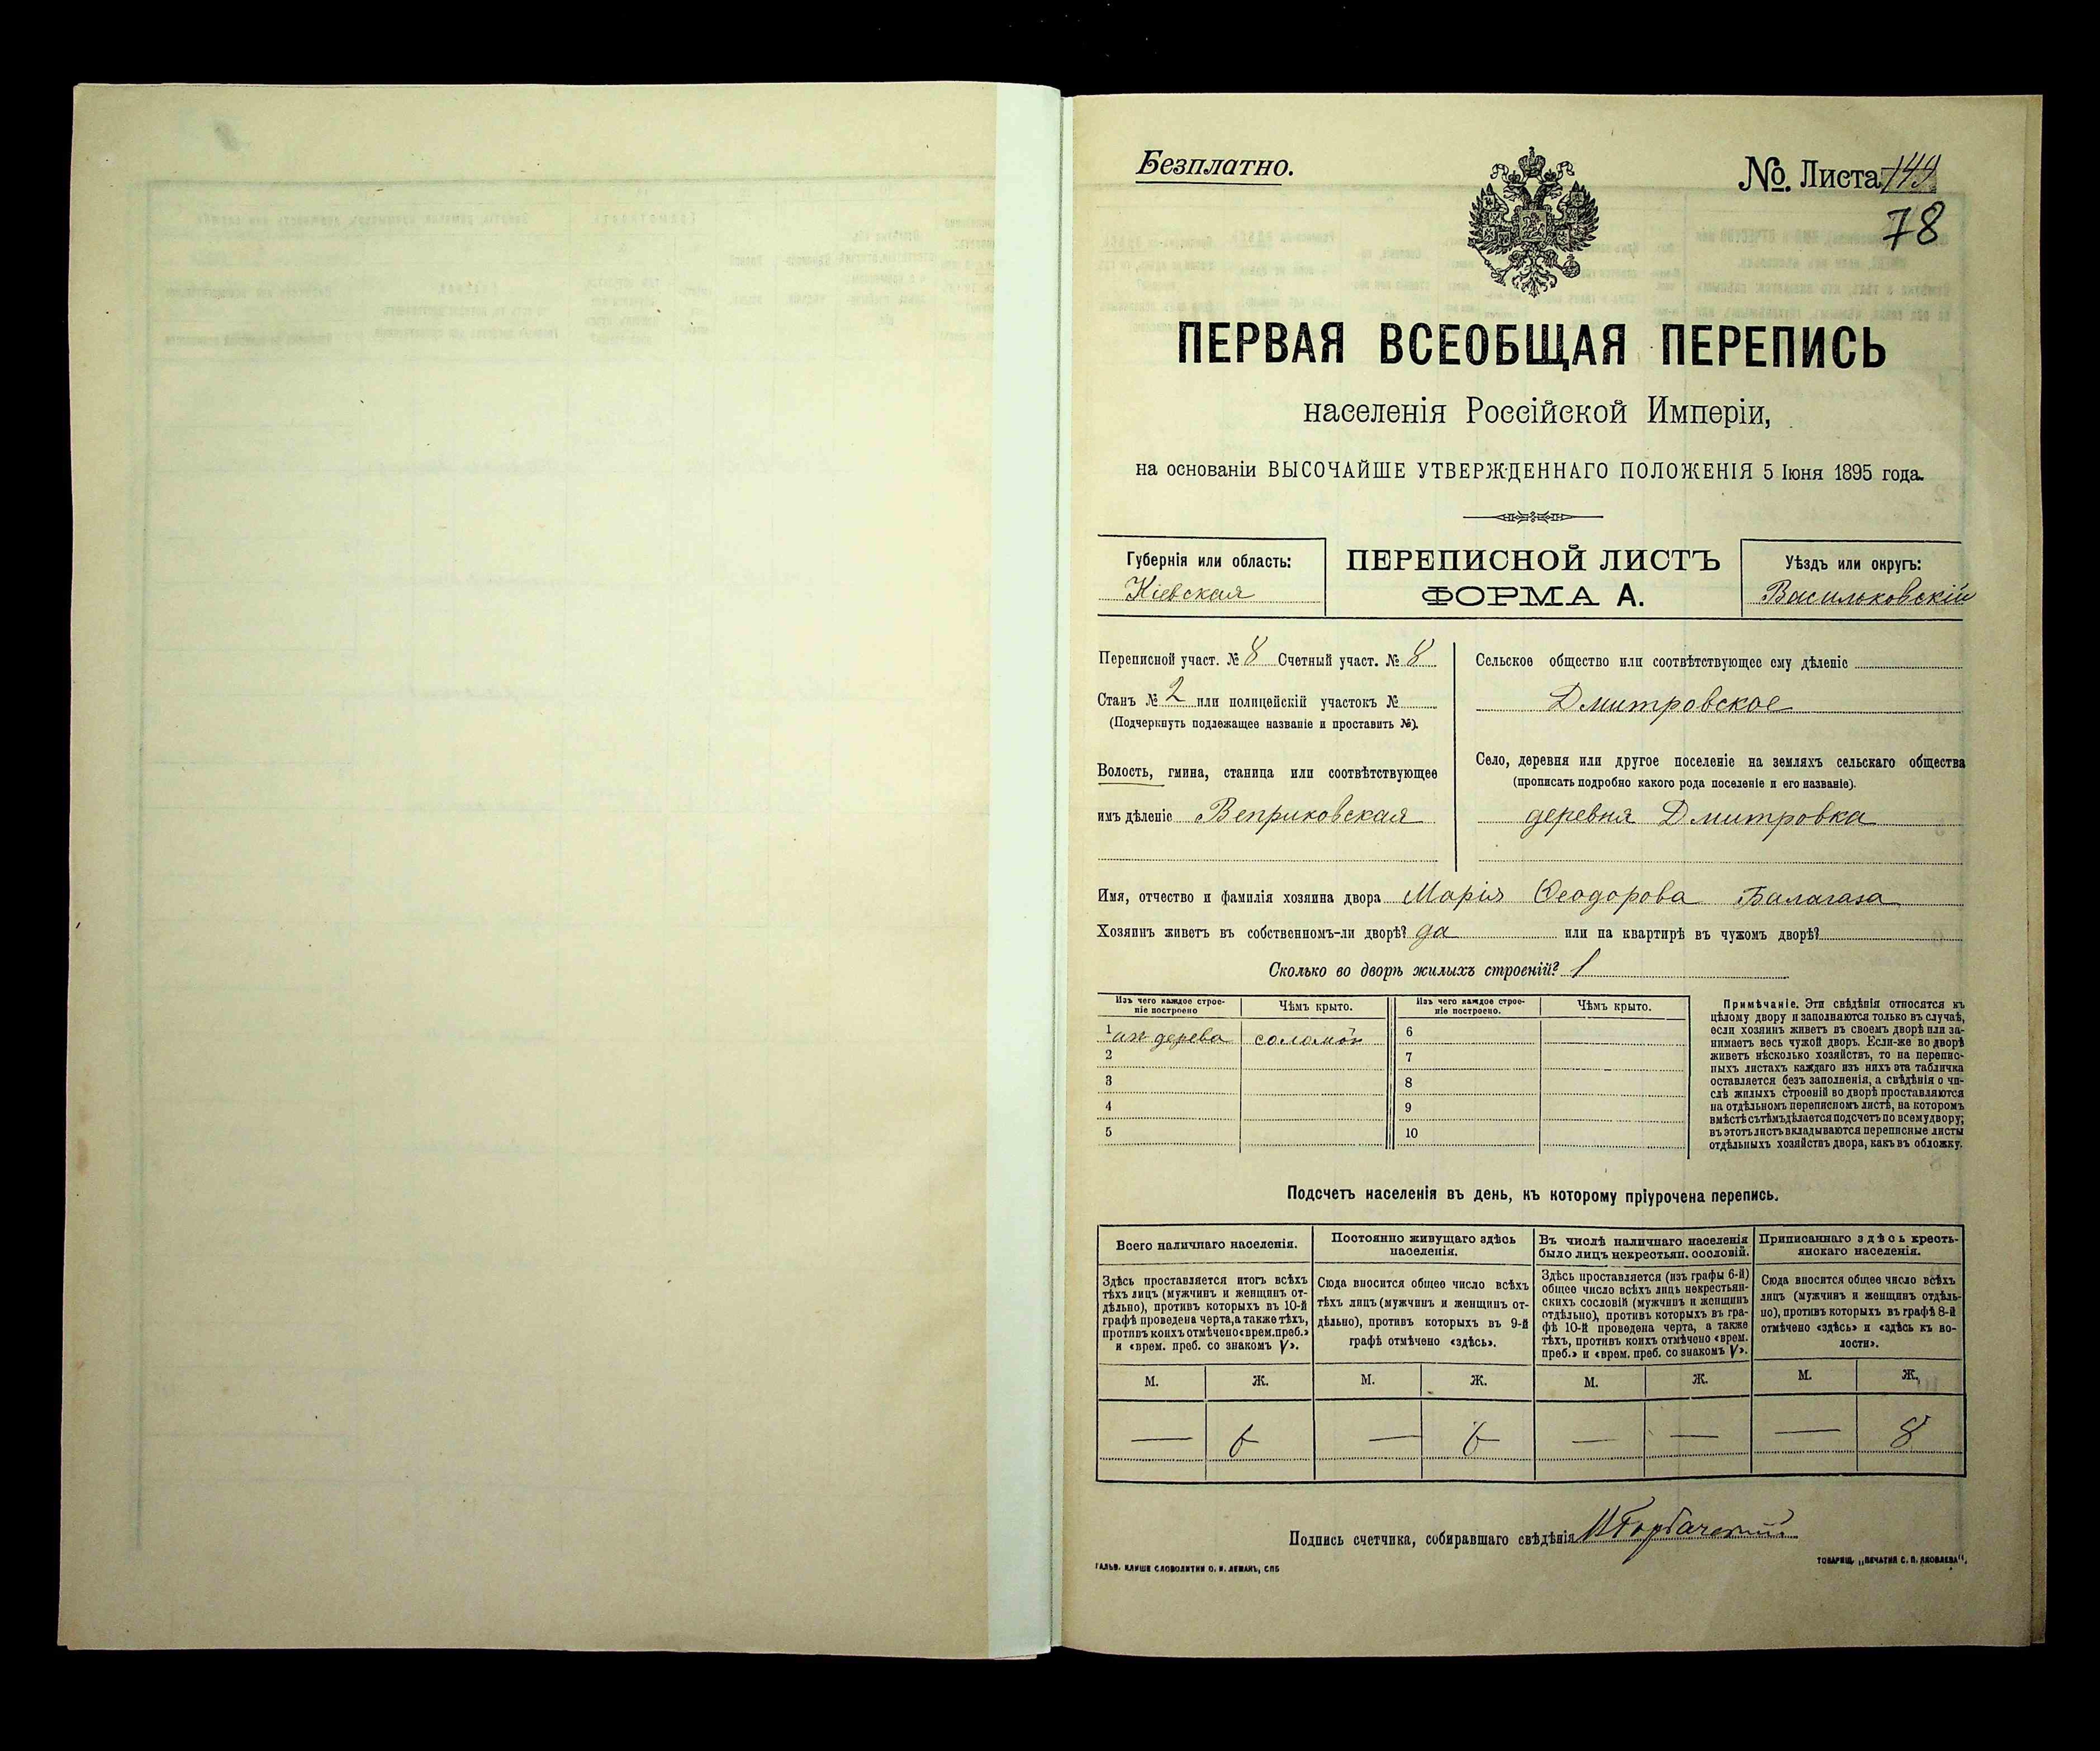 Безплатно.
№. Листа 149
78
ПЕРВАЯ ВСЕОБЩАЯ ПЕРЕПИСЬ
населенія Россійской Имперіи,
на основаніи ВЫСОЧАЙШЕ УТВЕРЖДЕННАГО ПОЛОЖЕНІЯ 5 Іюня 1895 года.
Губернія или область:
Кіевская
ПЕРЕПИСНОЙ ЛИСТЪ
ФОРМА А.
Уѣздъ или округъ:
Васильковскій
Переписной участ. № 8 Счетный участ. № 8
Станъ № 2 или полицейскій участокъ №
(Подчеркнуть подлежащее названіе и проставить №).
Волость, гмина, станица или соотвѣтствующее
имъ дѣленіе Веприковская
Сельское общество или соотвѣтствующее ему дѣленіе
Дмитровское
Село, деревня или другое поселеніе на земляхъ сельскаго общества
(прописать подробно какого рода поселеніе и его названіе).
деревня Дмитровка
Имя, отчество и фамилія хозяина двора Марія Ѳеодорова
Хозяинъ живетъ въ собственномъ-ли дворѣ? да или на квартирѣ въ чужомъ дворѣ?
Сколько во дворѣ жилыхъ строеній? 1
Изъ чего каждое строе-
ніе построено
Чѣмъ крыто.
Изъ чего каждое строе-
ніе построено.
Чѣмъ крыто.
1 изъ дерева соломой
2
3
4
5
6
7
8
9
10
Примѣчаніе. Эти свѣдѣнія относятся къ
цѣлому двору и заполняются только въ случаѣ,
если хозяинъ живетъ въ своемъ дворѣ или за-
нимаетъ весь чужой дворъ. Если-же во дворѣ
живетъ нѣсколько хозяйствъ, то на перепис-
ныхъ листахъ каждаго изъ нихъ эта табличка
оставляется безъ заполненія, а свѣдѣнія о чи-
слѣ жилыхъ строеній во дворѣ проставляются
на отдѣльномъ переписномъ листѣ, на которомъ
вмѣстѣ съ тѣмъ дѣлается подсчетъ по всему двору;
въ этотъ листъ вкладываются переписные листы
отдѣльныхъ хозяйствъ двора, какъ въ обложку.
Подсчетъ населенія въ день, къ которому пріурочена перепись.
Всего наличнаго населенія.
Здѣсь проставляется итогъ всѣхъ
тѣхъ лицъ (мужчинъ и женщинъ от-
дѣльно), противъ которыхъ въ 10-й
графѣ проведена черта, а также тѣхъ,
противъ коихъ отмѣчено «врем. преб.»
и «врем. преб. со знакомъ V».
Постоянно живущаго здѣсь
населенія.
Сюда вносится общее число всѣхъ
тѣхъ лицъ (мужчинъ и женщинъ от-
дѣльно), противъ которыхъ въ 9-й
графѣ отмѣчено «здѣсь».
Въ числѣ наличнаго населенія
было лицъ некрестьян. сословій.
Здѣсь проставляется (изъ графы 6-й)
общее число всѣхъ лицъ некрестьян-
скихъ сословій (мужчинъ и женщинъ
отдѣльно), противъ которыхъ въ гра-
фѣ 10-й проведена черта, а также
тѣхъ, противъ коихъ отмѣчено «врем.
преб.» и «врем. преб. со знакомъ V».
Приписаннаго здѣсь кресть-
янскаго населенія.
Сюда вносится общее число всѣхъ
лицъ (мужчинъ и женщинъ отдѣль-
но), противъ которыхъ въ графѣ 8-й
отмѣчено «здѣсь» и «здѣсь къ во-
лости».
М. Ж. М. Ж. М. Ж. М. Ж.
— 6 — 6 — — — 8
Подпись счетчика, собиравшаго свѣдѣнія
ГАЛЬВ. КЛИШЕ СЛОВОЛИТНИ О. И. ЛЕМАНЪ, СПБ
ТОВАРИЩ. „ПЕЧАТНЯ С. П. ЯКОВЛЕВА“.